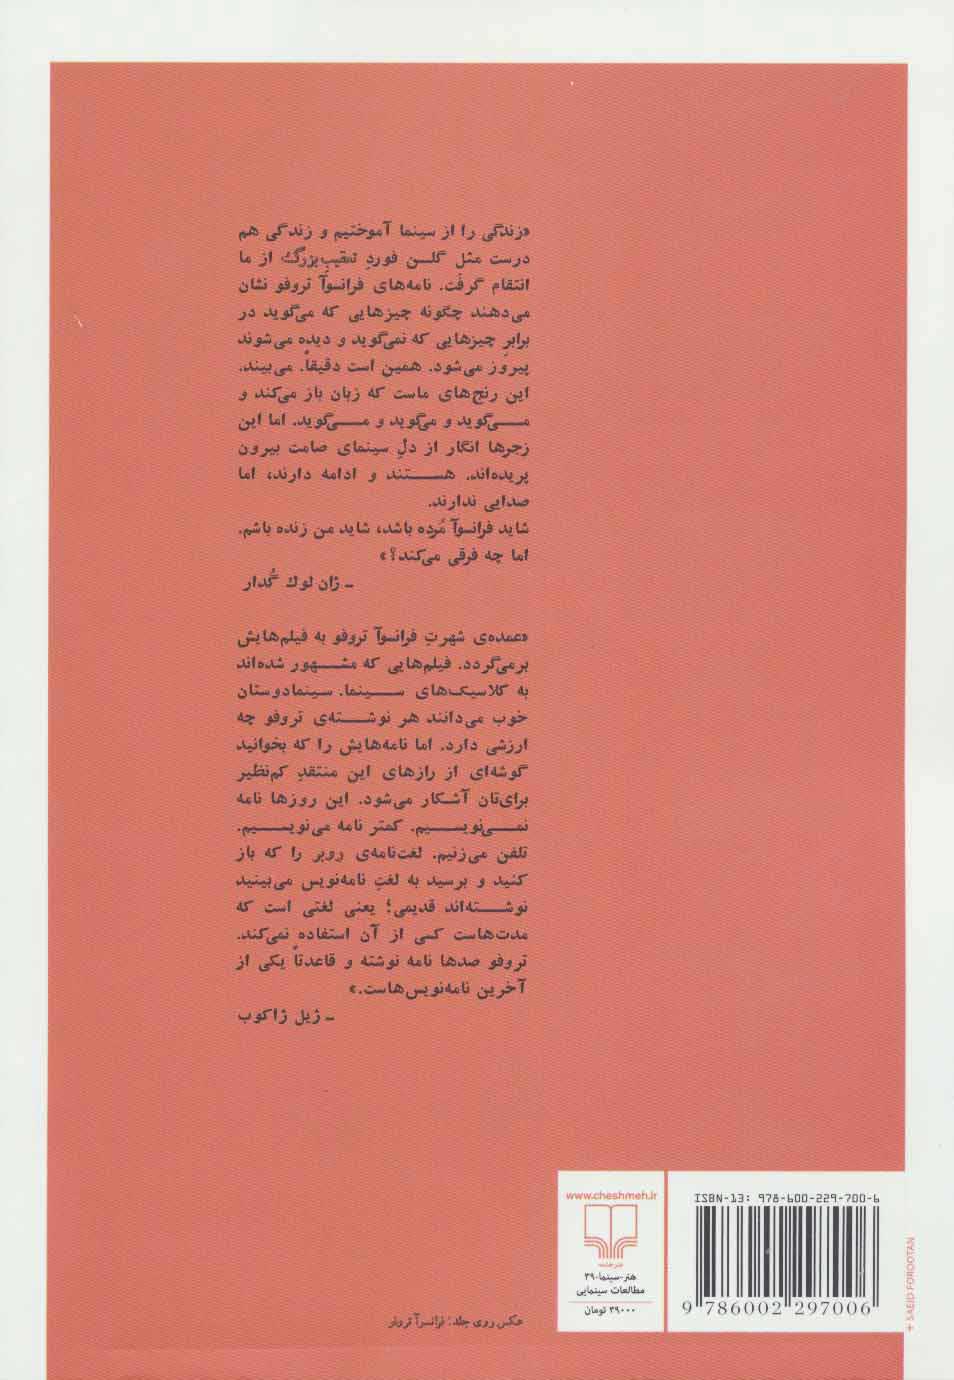 «زندگی را از سینما آموختیم و زندگی هم
درست مثل گلـن فوردِ تعقیبِ‌بزرگ، از ما
انتقام گرفت. نامه‌های فرانسوآ تروفو نشان
می‌دهند چگونه چیزهایی که می‌گوید در
برابرِ چیزهایی که نمی‌گوید و دیده می‌شوند
پیروز می‌شود. همین است دقیقاً. می‌بیند.
این رنج‌های ماست که زبان باز می‌کند و
مـــی‌گوید و می‌گوید و مـــی‌گوید. اما این
زجرها انگار از دلِ سینمای صامت بیرون
پریده‌اند. هســـتند و ادامه دارند، اما
صدایی ندارند.
شاید فرانسوآ مُرده باشد، شاید من زنده باشم.
اما چه فرقی می‌کند؟»
ـ ژان لوک گُدار
«عمده‌ی شهرتِ فرانسوآ تروفو به فیلم‌هایش
برمی‌گردد. فیلم‌هایی که مشـــهور شده‌اند
به کلاسیک‌های ســـینما. سینمادوستان
خوب می‌دانند هر نوشـــته‌ی تروفو چه
ارزشی دارد. اما نامه‌هایش را که بخوانید
گوشه‌ای از رازهای این منتقدِ کم‌نظیر
برای‌تان آشـکار می‌شود. این روزها نامه
نمـــی‌نویســـیم. کمتر نامه می‌نویســـیم.
تلفن می‌زنیم. لغت‌نامه‌ی روبر را که باز
کنید و برسید به لغتِ نامه‌نویس می‌بینید
نوشـــته‌اند قدیمی؛ یعنی لغتی است که
مدت‌هاست کسی از آن استفاده نمی‌کند.
تروفو صدها نامه نوشته و قاعدتاً یکی از
آخرین نامه‌نویس‌هاست.»
ـ ژیل ژاکوب
عکس روی جلد: فرانسوآ تروفو
www.cheshmeh.ir
نشرچشمه
هنر-سینما-۳۹
مطالعات سینمایی
۳۹۰۰۰ تومان
ISBN-13: 978-600-229-700-6
9 786002 297006
+ SAEID FOROOTAN